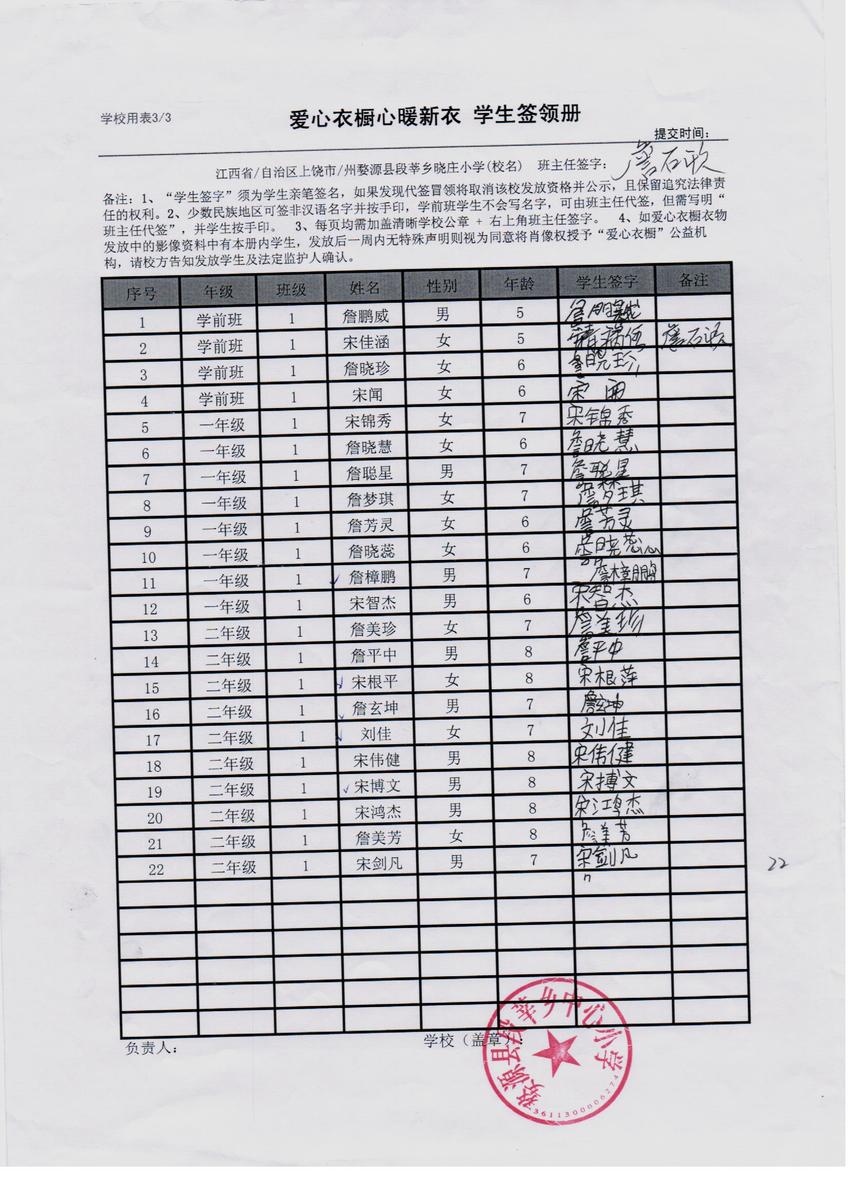 学校用表3/3
爱心衣橱心暖新衣 学生签领册
提交时间：
江西省/自治区上饶市/州婺源县段莘乡晓庄小学(校名) 班主任签字：詹石欣
备注：1、“学生签字”须为学生亲笔签名，如果发现代签冒领将取消该校发放资格并公示，且保留追究法律责
任的权利。2、少数民族地区可签非汉语名字并按手印，学前班学生不会写名字，可由班主任代签，但需写明“
班主任代签”，并学生按手印。 3、每页均需加盖清晰学校公章 + 右上角班主任签字。 4、如爱心衣橱衣物
发放中的影像资料中有本册内学生，发放后一周内无特殊声明则视为同意将肖像权授予“爱心衣橱”公益机
构，请校方告知发放学生及法定监护人确认。
序号 年级 班级 姓名 性别 年龄 学生签字 备注
1 学前班 1 詹鹏威 男 5
2 学前班 1 宋佳涵 女 5
3 学前班 1 詹晓珍 女 6 詹晓珍
4 学前班 1 宋闻 女 6 宋
5 一年级 1 宋锦秀 女 7 宋锦秀
6 一年级 1 詹晓慧 女 6 詹晓慧
7 一年级 1 詹聪星 男 7 詹聪星
8 一年级 1 詹梦琪 女 7 詹梦琪
9 一年级 1 詹芳灵 女 6 詹芳灵
10 一年级 1 詹晓蕊 女 6 詹晓蕊
11 一年级 1 詹樟鹏 男 7 詹樟鹏
12 一年级 1 宋智杰 男 6 宋智杰
13 二年级 1 詹美珍 女 7 詹美珍
14 二年级 1 詹平中 男 8 詹平中
15 二年级 1 宋根平 女 8 宋根萍
16 二年级 1 詹玄坤 男 7 詹玄坤
17 二年级 1 刘佳 女 7 刘佳
18 二年级 1 宋伟健 男 8 宋伟健
19 二年级 1 宋博文 男 8 宋博文
20 二年级 1 宋鸿杰 男 8 宋鸿杰
21 二年级 1 詹美芳 女 8 詹美芳
22 二年级 1 宋剑凡 男 7 宋剑凡
22
负责人：
学校（盖章）：
婺源县段莘乡中心小学
3611300006274